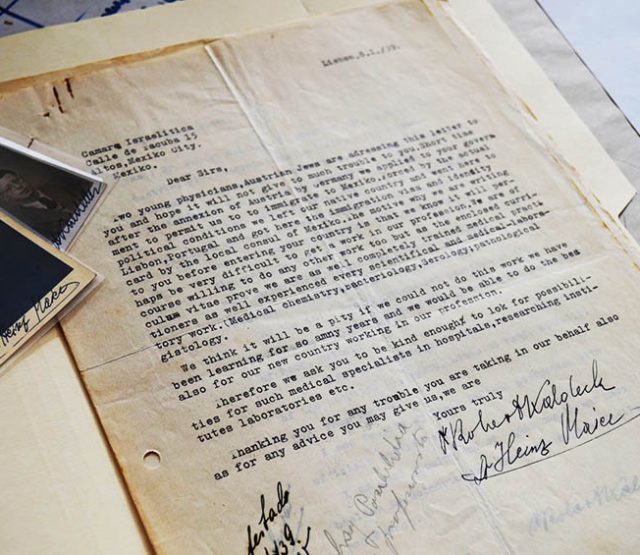 Lisbon,8.I./39.
Camara Israelitica
Calle de Tacuba 15
Altos,Mexiko City.
Mexiko.
Dear Sirs,
Two young physicians,Austrian Jews are adressing this letter to
you and hope it will not give to much trouble to you.Short time
after the annexion of Austria by Germany we applied to your governa
ment to permit us to immigrate to Mexiko.Forced by the actual
political conditions we left our native country and went here to
Lisbon, Portugal and got here the immigration visa and identity
card by the local consul of Mexiko.The motive why we are writing
to you before entering your country is that we know it will per-
haps be very difficult to get work in our profession.We are of
course willing to do any other work too but as the enclosed curri-
culum vitae prove we are as well completely trained medical practi-
tioners as well experienced every scientifical and medical-labora-
tory work.(Medical chemistry,bacteriology,Serology,pathological
gistology.
We think it will be a pity if we could not do this work we have
been learning for so amny years and we would be able to do the bes
also for our new country working in our profession.
Therefore we ask you to be kind enoughg to lok for possibili-
ties for such medical specialists in hospitals,researching insti-
tutes laboratories etc.
Thanking you for any trouble you are taking in our behalf also
as for any advice you may give us,we are
Yours truly
Dr Robert Kaldeck
Dr Heinz Maier
Heinz Maier